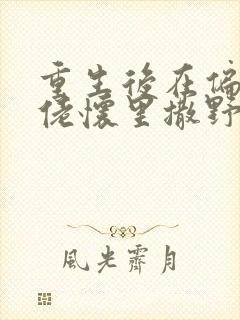 重生後在偏
佬懷里撒野
風光霽月